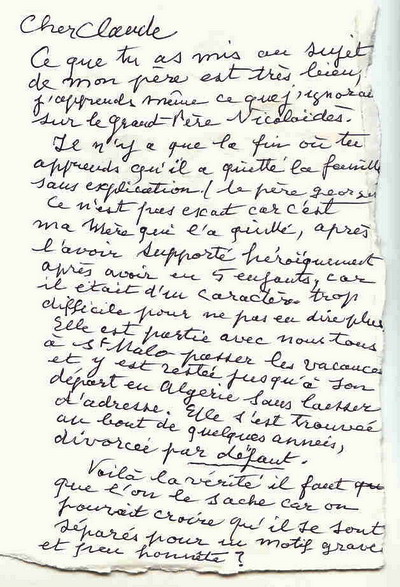 Cher Claude
Ce que tu as mis au sujet
de mon père est très bien,
j'apprends même ce que j'ignorai
sur le grand-Père Nicolaidès.
Il n'y a que la fin où tu
apprends qu'il a quitté la famille
sans explication / le père georges
Ce n'est pas exact car c'est
ma mère qui l'a quitté, après
l'avoir supporté héroïquement
après avoir eu 5 enfants, car
il était d'un caractère trop
difficile pour ne pas en dire plus
Elle est partie avec nous tous
à St Malo passer les vacances
et y est restée jusqu'à son
départ en Algérie sans laisser
d'adresse. Elle s'est trouvée
au bout de quelques années,
divorcée par défaut.
Voilà la vérité il faut que
que l'on le sache car on
pourait croire qu'il se sont
séparés pour un motif grave
et peu honnête ?